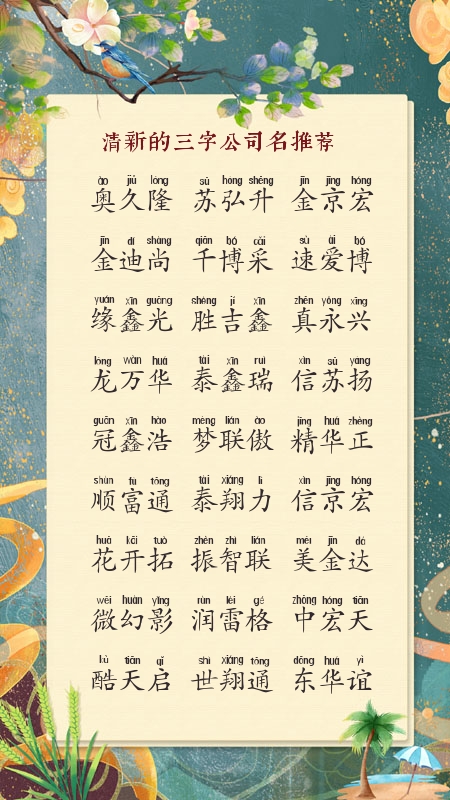 清新的三字公司名推荐
ào jiǔ lóng sū hóng shēng jīn jīng hóng
奥久隆 苏弘升 金京宏
jīn dí shàng qiān bó cǎi sù ài bó
金迪尚 千博采 速爱博
yuán xīn guāng shèng jí xīn zhēn yǒng xīng
缘鑫光 胜吉鑫 真永兴
lóng wàn huá tài xīn ruì xìn sū yáng
龙万华 泰鑫瑞 信苏扬
guān xīn hào mèng lián ào jīng huá zhèng
冠鑫浩 梦联傲 精华正
shùn fù tōng tài xiáng lì xìn jīng hóng
顺富通 泰翔力 信京宏
huā kāi tuò zhèn zhì lián měi jīn dá
花开拓 振智联 美金达
wēi huàn yǐng rùn léi gé zhōng hóng tiān
微幻影 润雷格 中宏天
kù tiān qǐ shì xiáng tōng dōng huá yì
酷天启 世翔通 东华谊